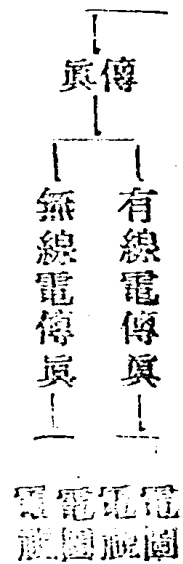 傳眞
有線電傳眞
無線電傳眞
電圖
電視
電圖
電視